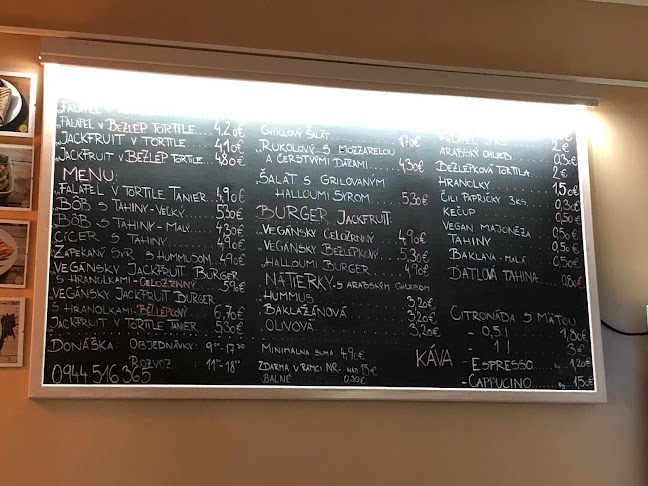 „FALAFEL V
„FALAFEL V BEZLEP TORTILE.... 4,20€
„JACKFRUIT V TORTILE..... 4,10€
„JACKFRUIT V BEZLEP TORTILE. 4,80€
MENU:
„FALAFEL V TORTILE TANIER. 4,90€
BÔB S TAHINY-VEĽKÝ..... 5,30€
BÔB S TAHINY-MALÝ..... 4,30€
CÍCER S TAHINY..... 4,90€
ZAPEKANÝ SYR S HUMMUSOM. 4,90€
VEGÁNSKY JACKFRUIT BURGER
S HRANOLKAMI-CELOZRNNÝ...... 5,90€
„VEGÁNSKY JACKFRUIT BURGER
S HRANOLKAMI-BEZLEPKOVÝ..... 6,70€
JACKFRUIT V TORTILE TANIER 5,30€
DONÁŠKA: OBJEDNÁVKY: 9⁰⁰-17³⁰
ROZVOZ: 11⁰⁰-18⁰⁰
0944 516 365
CVIKLOVÝ ŠALÁT..... 1,70€
RUKOLOVÝ S MOZZARELOU
A ČERSTVÝMI DATLAMI...... 4,30€
ŠALÁT S GRILOVANÝM
HALLOUMI SYROM...... 5,30€
BURGER JACKFRUIT:
VEGÁNSKY CELOZRNNÝ.... 4,90€
„VEGÁNSKY BEZLEPKOVÝ...... 5,30€
„HALLOUMI BURGER..... 4,90€
NÁTIERKY-S ARABSKÝM CHLEBOM
HUMMUS..... 3,20€
BAKLAŽÁNOVÁ..... 3,20€
OLIVOVÁ..... 3,20€
MINIMALNA SUMA: 4,90€
ZDARMA V RÁMCI NR- NAD 15€
BALNÉ..... 0,30€
FALAFEL 5 KS..... 2€
ARABSKÝ CHLIEB...... 0,3€
BEZLEPKOVÁ TORTILA...... 2€
HRANOLKY...... 1,50€
ČILI PAPRIČKY 3KS.... 0,3€
KEČUP...... 0,50€
VEGAN MAJONÉZA. 0,50€
TAHINY...... 0,50€
BAKLAVA-MALÁ.... 0,50€
DATLOVÁ TAHINA..... 0,80€
CITRONÁDA S MÄTOU
- 0,5 l..... 1,80€
- 1 l..... 3€
KÁVA
- ESPRESSO..... 1,20€
- CAPPUCINO..... 1,50€